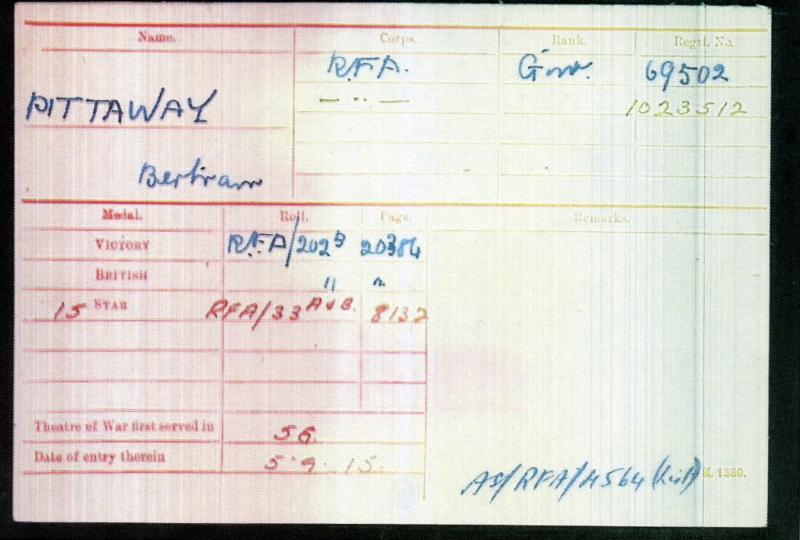 Name. Corps. Rank. Regtl. No.
R.F.A. Gnr. 69502
PITTAWAY — " — 1023512
Bertram
Medal. Roll. Page. Remarks.
VICTORY RFA/202B 20384
BRITISH " "
15 STAR RFA/33 A&B. 8132
Theatre of War first served in
Date of entry therein 5·9·15.
AS/RFA/4564 K. 1380.